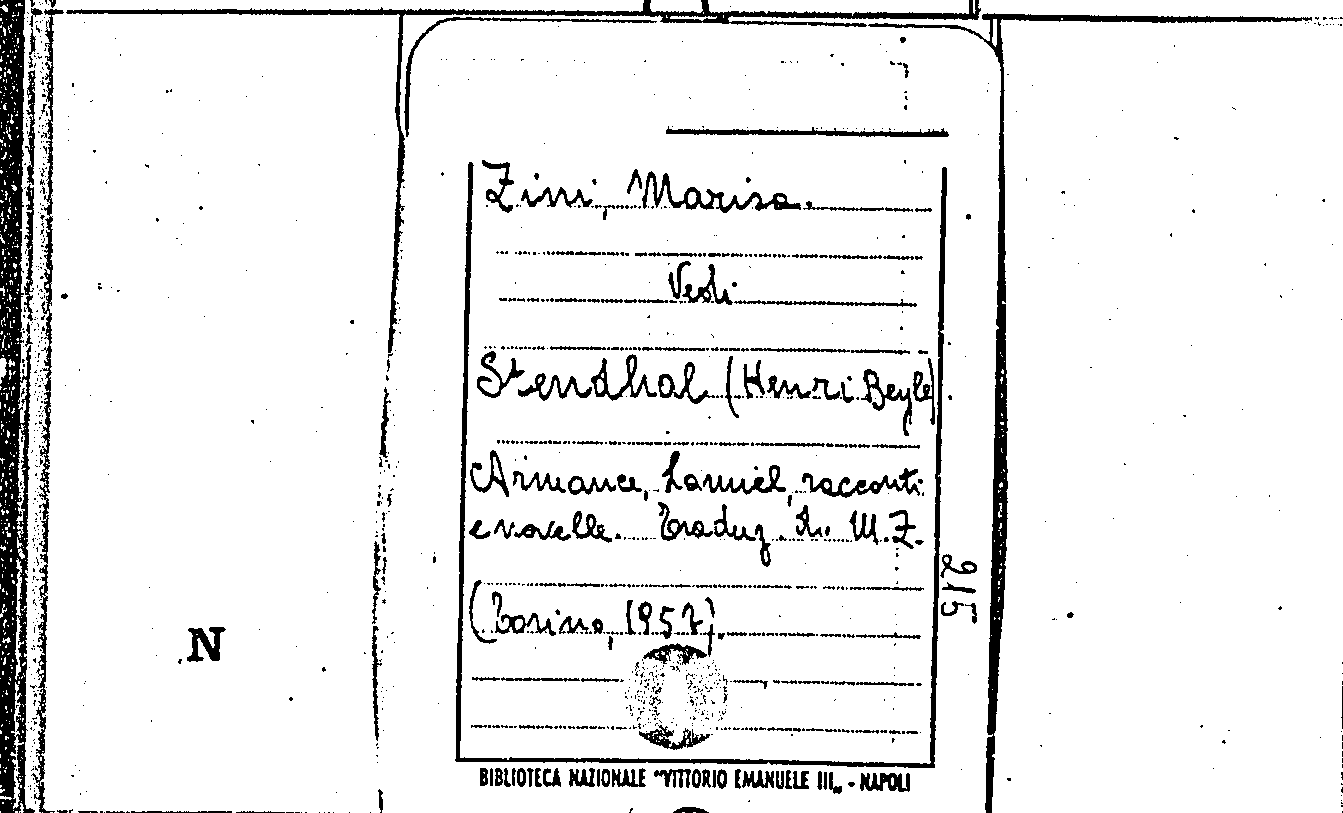 Zini, Marisa.
Vedi
Stendhal (Henri Beyle)
Armance, Lamiel, racconti
e novelle. Traduz. di M.Z.
(Torino, 1957).
215
N
BIBLIOTECA NAZIONALE "VITTORIO EMANUELE III„ - NAPOLI